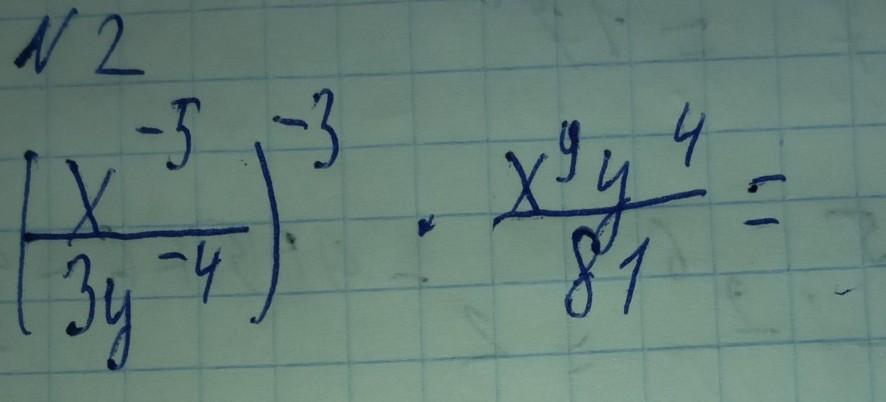 № 2
(x^-5 / 3y^-4)^-3 · x^9 y^4 / 81 =